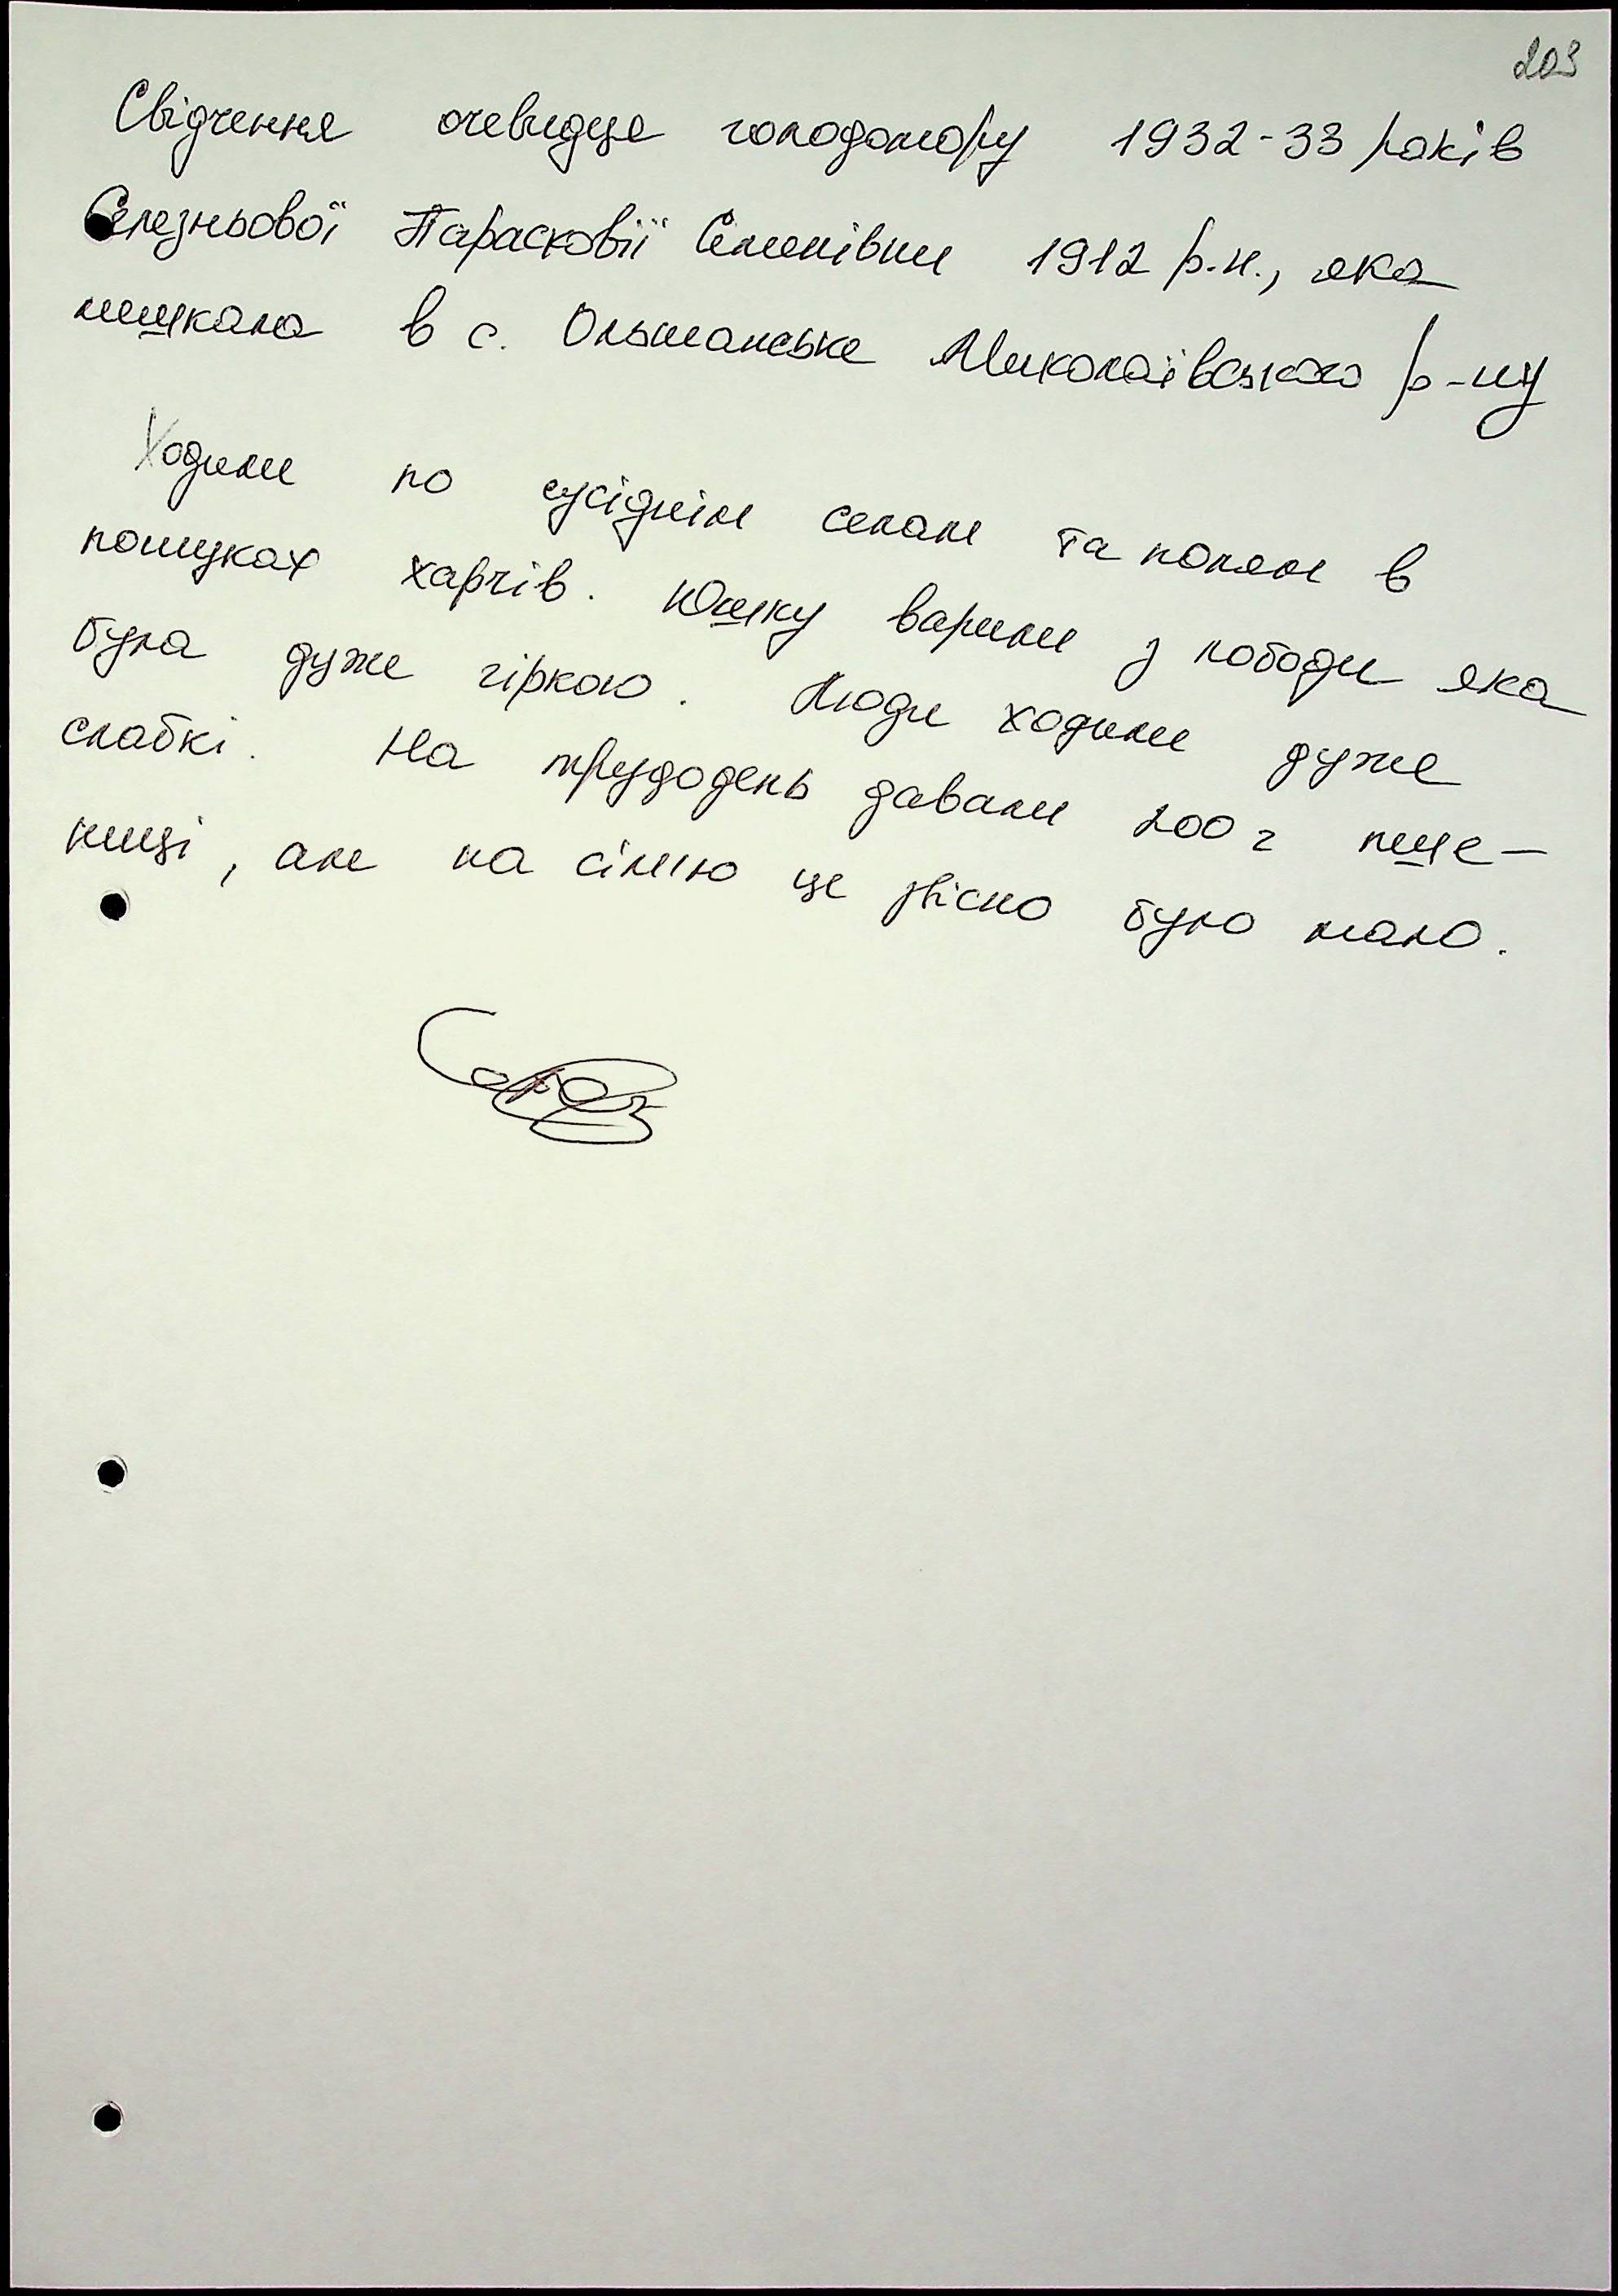 203
Свідчення очевидця голодомору 1932-33 років
Селезньової Парасковії Семенівни 1912 р.н., яка
мешкала в с. Ольшанське Миколаївського р-ну
Ходили по сусіднім селам та полям в
пошуках харчів. Юшку варили з лободи яка
була дуже гіркою. Люди ходили дуже
слабкі. На трудодень давали 200 г пше-
ниці, але на сім'ю це звісно було мало.